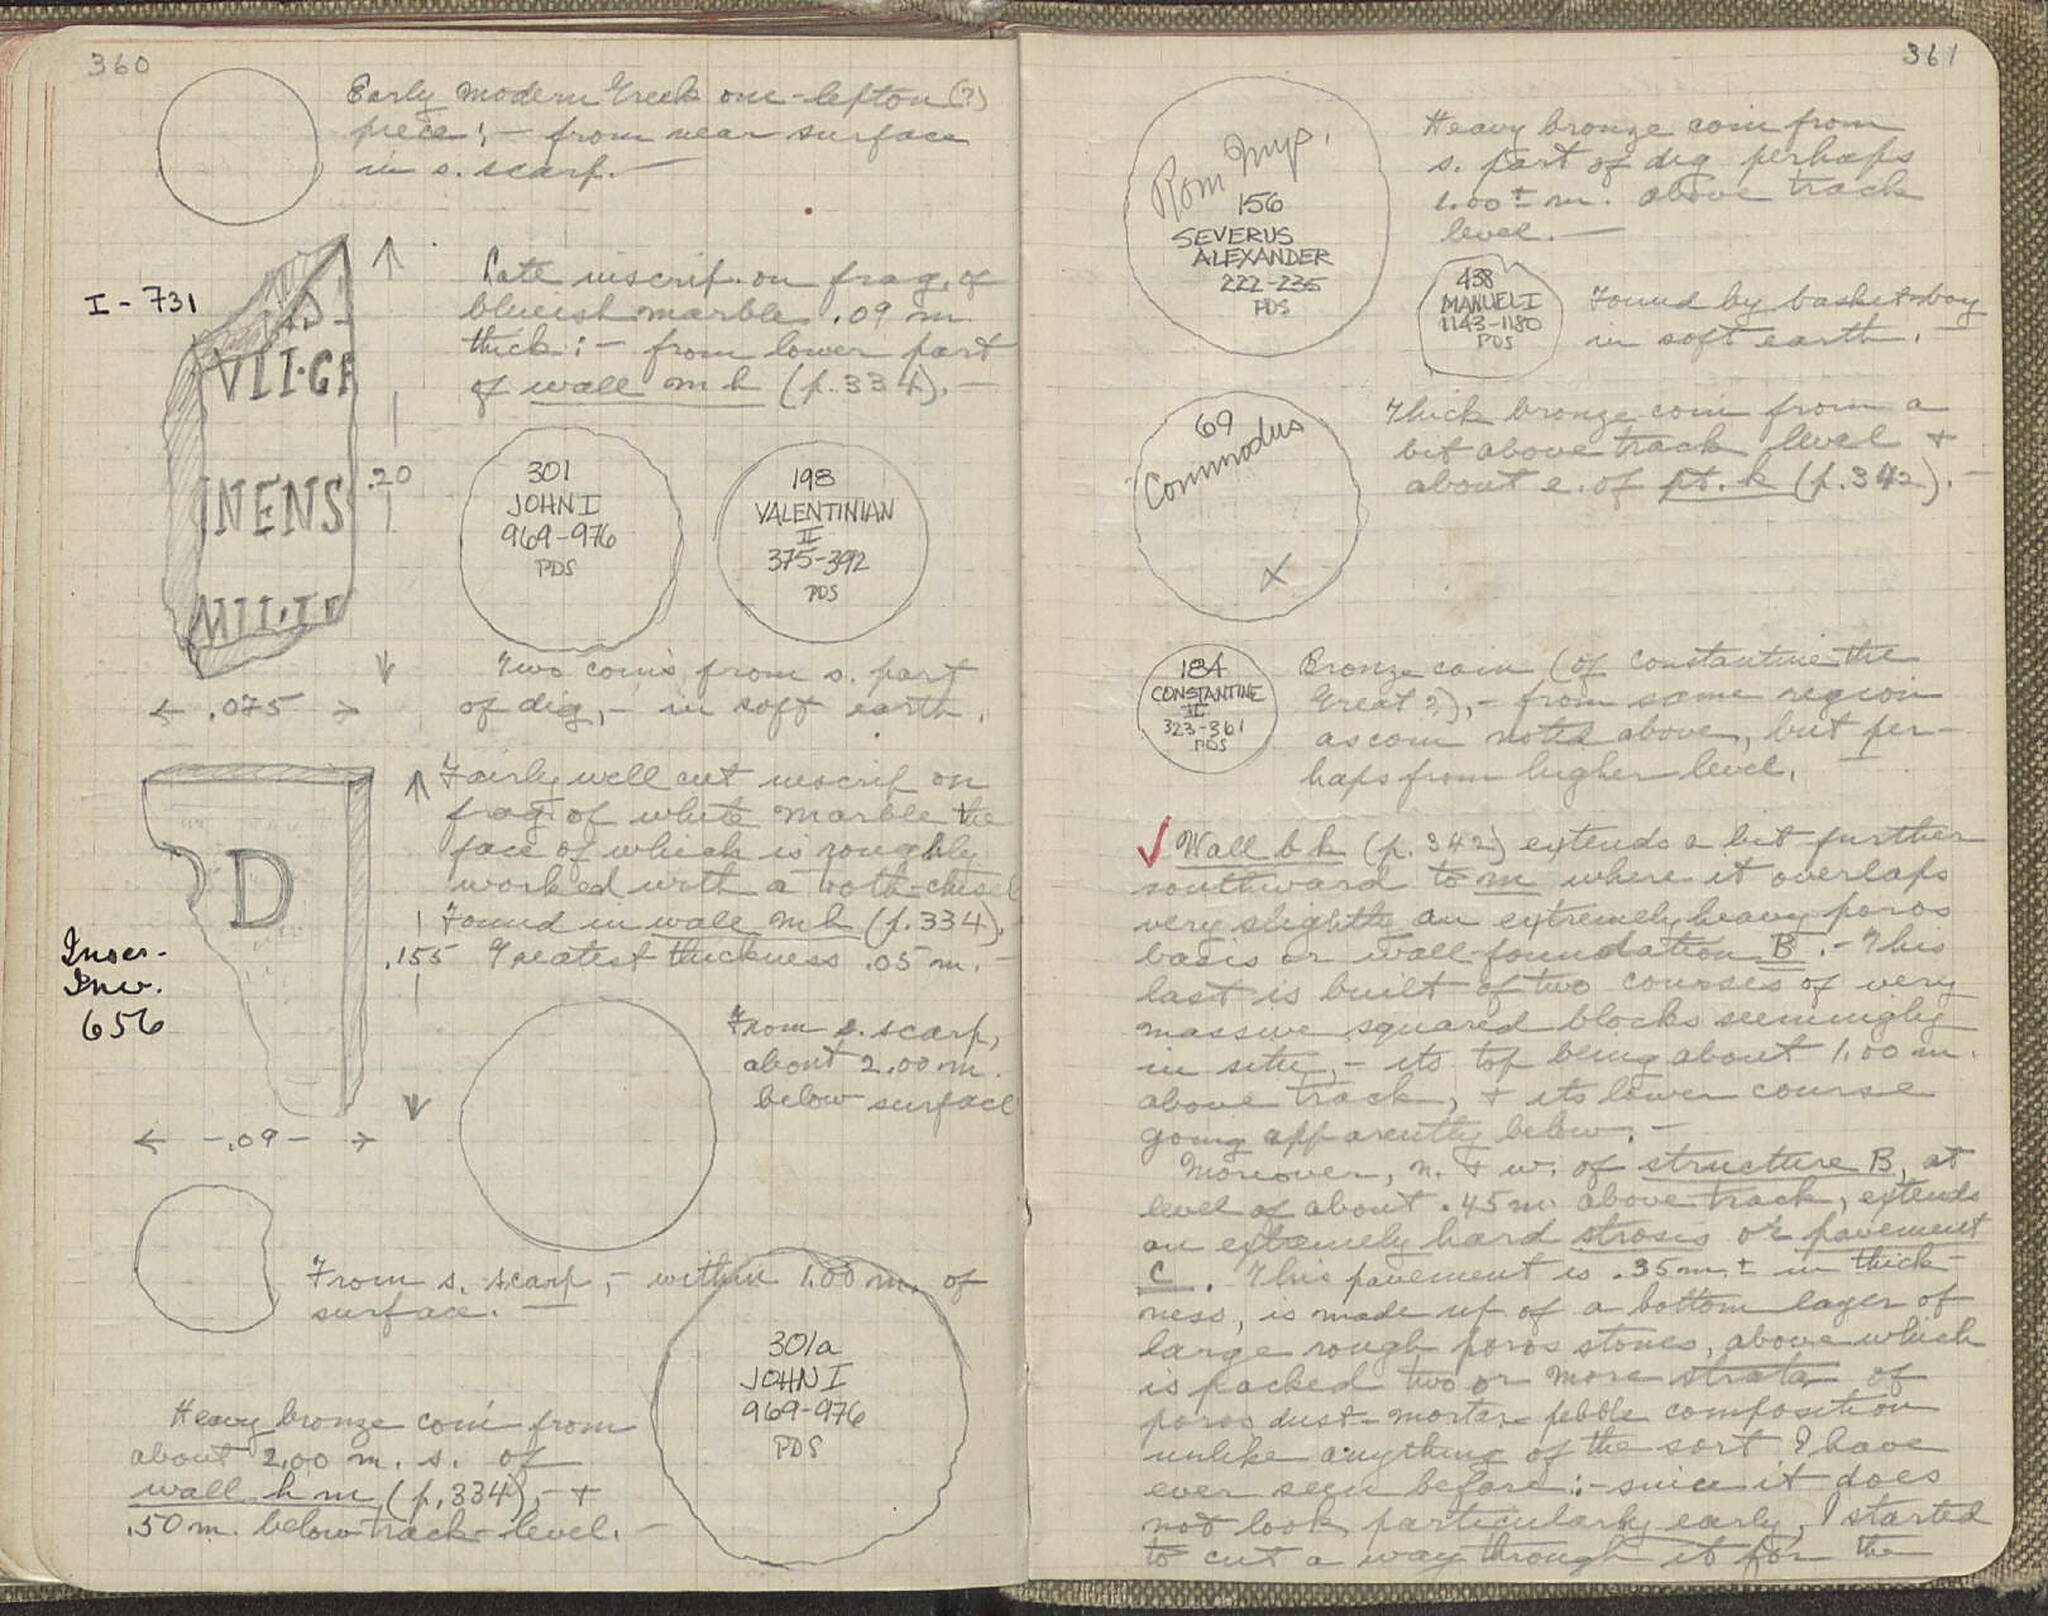 360
Early modern Greek one-lepton (?)
piece; — from near surface
in s. scarp. —
I - 731
VLI·CA
INENS
MIL·IT
.20
← .075 →
Late inscrip. on frag. of
blueish marble .09 m
thick: — from lower part
of wall m h (p. 334). —
301
JOHN I
969-976
PDS
198
VALENTINIAN
II
375-392
PDS
Two coins from s. part
of dig, — in soft earth.
D
Inscr.
Inv.
656
.155
← .09 →
Fairly well cut inscrip on
frag. of white marble the
face of which is roughly
worked with a tooth-chisel
Found in wall m h (p. 334).
Greatest thickness .05 m. —
From s. scarp,
about 2.00 m.
below surface
From s. scarp, — within 1.00 m. of
surface. —
301a
JOHN I
969-976
PDS
Heavy bronze coin from
about 2.00 m. s. of
wall h m (p. 334), — +
.50 m. below track-level. —
361
Rom Imp.
156
SEVERUS
ALEXANDER
222-235
PDS
Heavy bronze coin from
s. part of dig perhaps
1.00 ± m. above track
level. —
438
MANUEL I
1143-1180
PDS
Found by basket-boy
in soft earth. —
69
Commodus
X
Thick bronze coin from a
bit above track level +
about e. of pt. k (p. 342). —
184
CONSTANTINE
II
323-361
PDS
Bronze coin (of Constantine the
Great?), — from same region
as coin noted above, but per-
haps from higher level.
✓ Wall b k (p. 342) extends a bit further
southward to m where it overlaps
very slightly an extremely heavy poros
basis or wall-foundation B. — This
last is built of two courses of very
massive squared blocks seemingly
in situ, — its top being about 1.00 m.
above track, + its lower course
going apparently below. —
Moreover, n. + w. of structure B, at
level of about .45 m above track, extends
an extremely hard strosis or pavement
C. This pavement is .35 m. ± in thick-
ness, is made up of a bottom layer of
large rough poros stones, above which
is packed two or more strata of
poros dust-mortar-pebble composition
unlike anything of the sort I have
ever seen before: — since it does
not look particularly early, I started
to cut a way through it for the